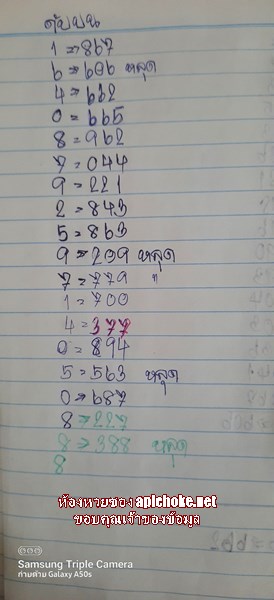 ดับบน
1 = 867
6 = 606 หลุด
4 = 662
0 = 665
8 = 962
7 = 044
9 = 221
2 = 843
5 = 863
9 = 209 หลุด
7 = 779 "
1 = 700
4 = 377
0 = 894
5 = 563 หลุด
0 = 687
8 = 227
8 = 388 หลุด
8
ห้องหวยของ apichoke.net
ขอบคุณเจ้าของข้อมูล
Samsung Triple Camera
ถ่ายด้วย Galaxy A50s